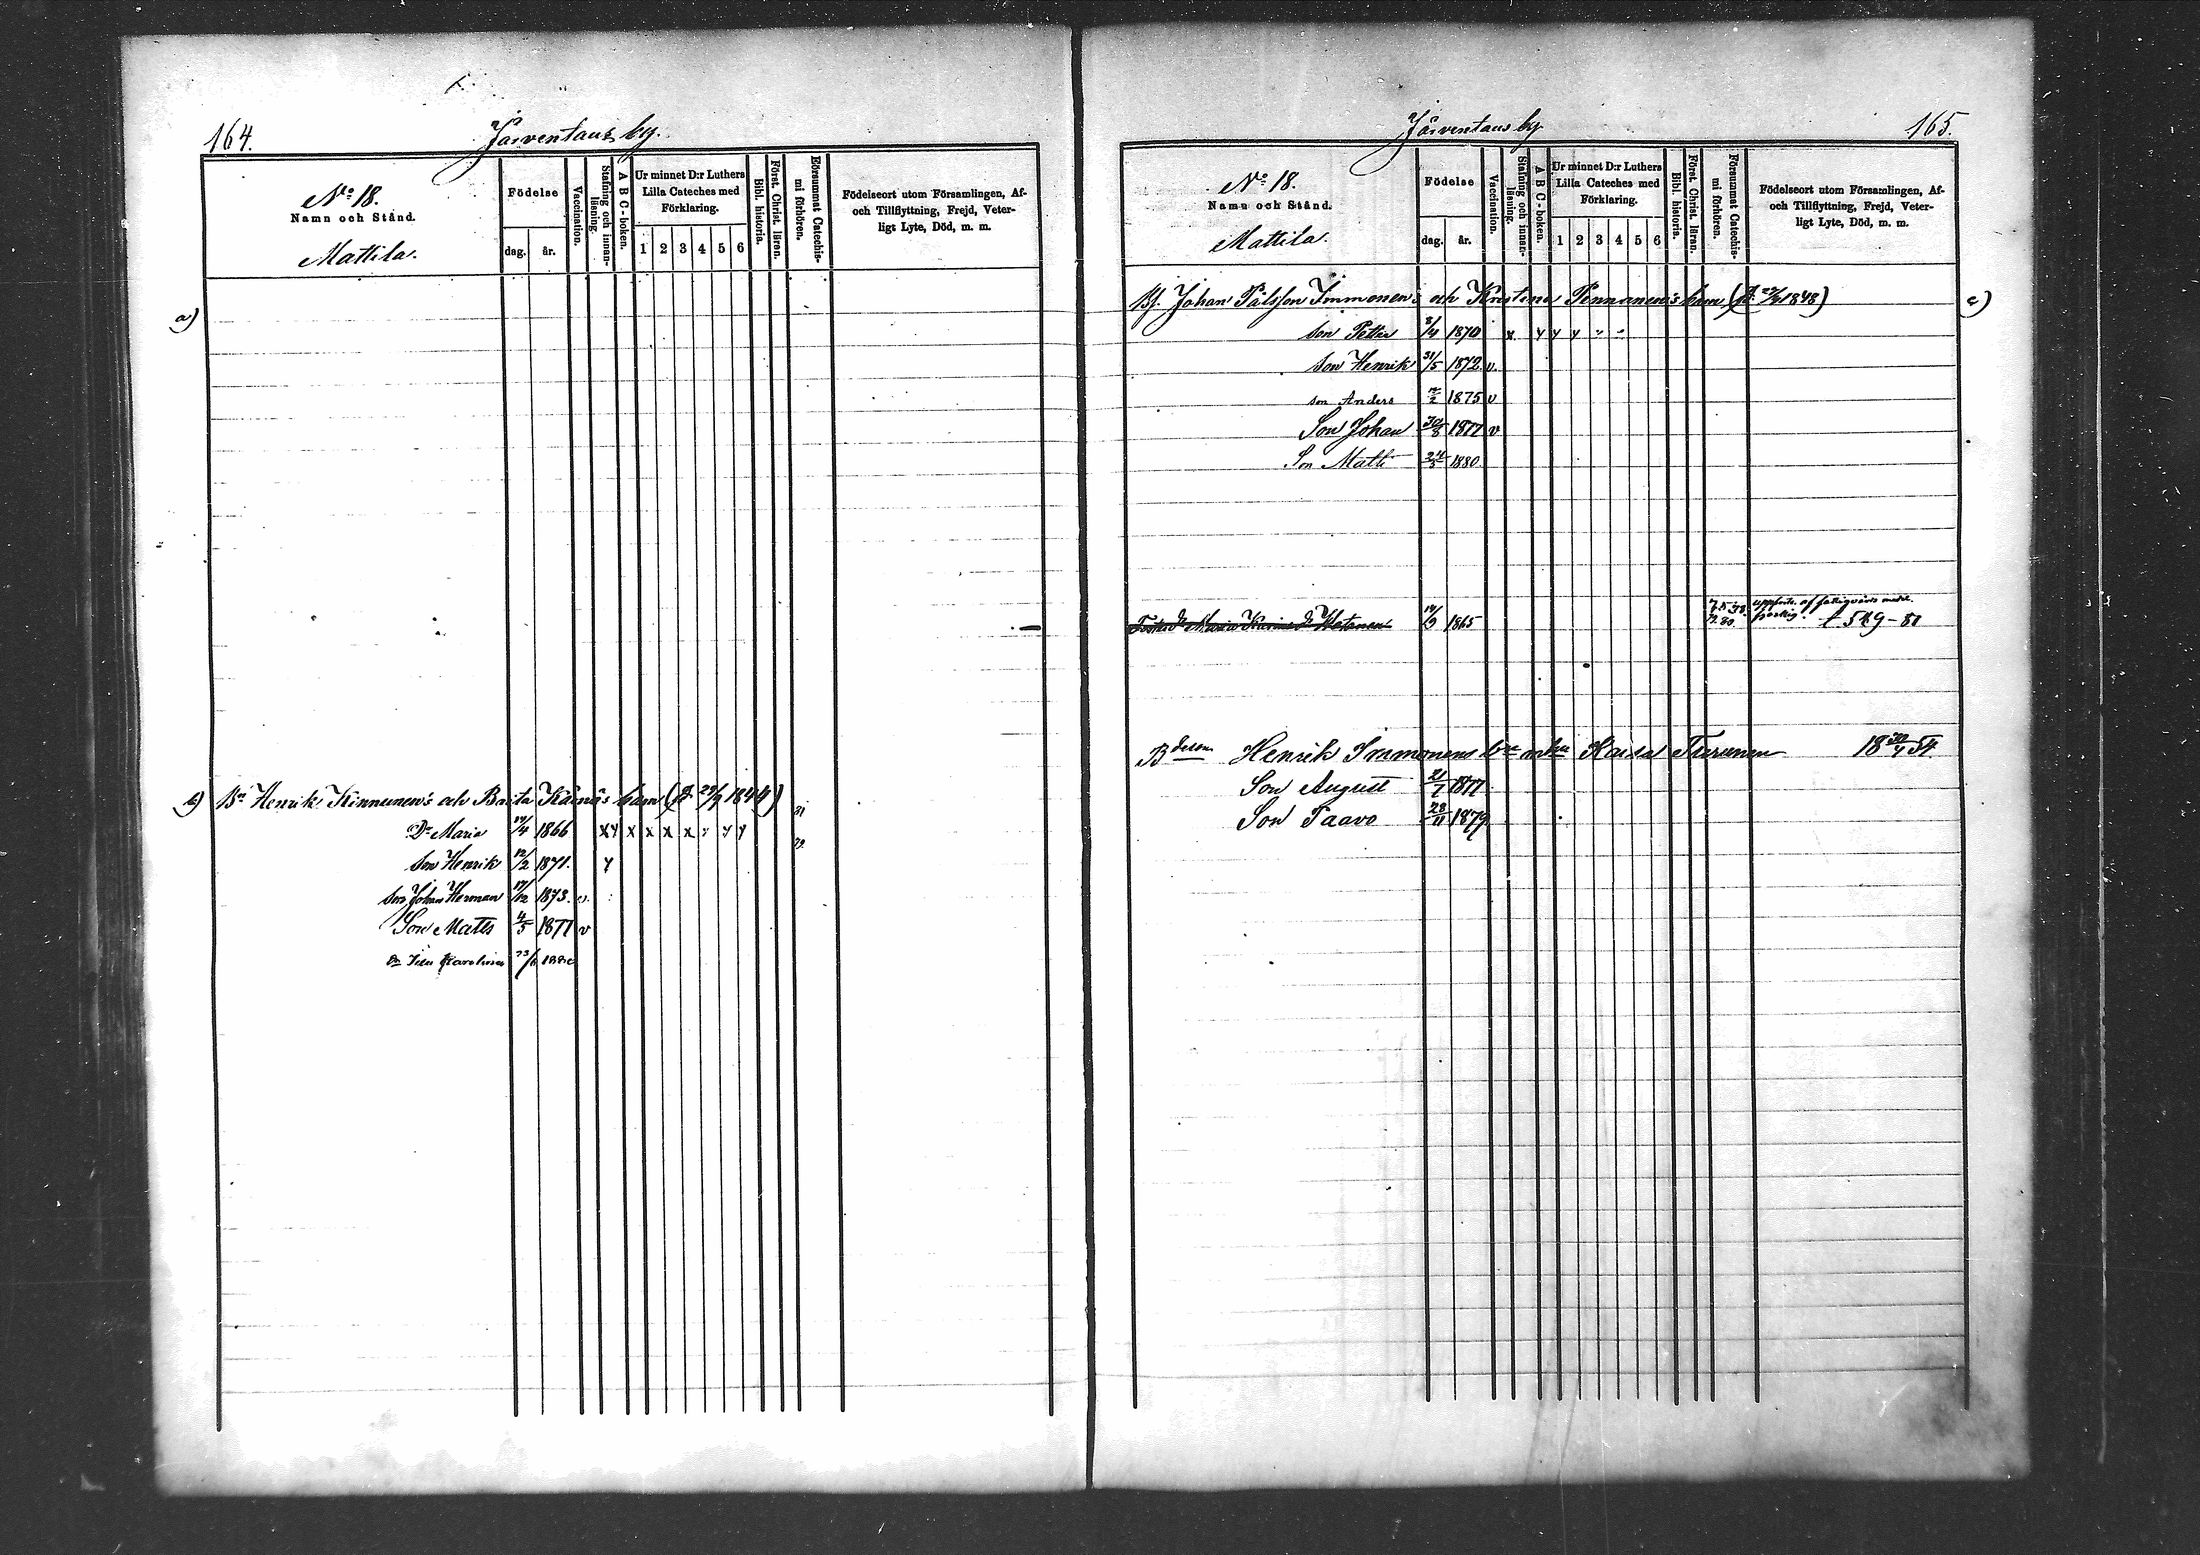 164.
Järventaus by.
No 18.
Namn och Stånd.
Mattila.
Födelse
dag.
år.
Vaccination.
Stafning och innan-läsning.
A B C-boken.
Ur minnet D:r Luthers
Lilla Cateches med
Förklaring.
1 2 3 4 5 6
Bibl. historia.
Först. Christ. läran.
Försummat Catechis-mi förhören.
Födelseort utom Församlingen, Af-
och Tillflyttning, Frejd, Veter-
ligt Lyte, Död, m. m.
a)
b) Bn Henrik Kinnunen's och Brita barn 29/9 1844)
81
Dr Maria 14/4 1866 x y x x x x y y
79.
Son Henrik 12/2 1871. y
Son Johan Herman 17/12 1873. v.
Son Matts 4/5 1877 v
Karolina 23/ 1880
165.
Järventaus by
No 18.
Namn och Stånd.
Mattila.
Födelse
dag.
år.
Vaccination.
Stafning och innan-läsning.
A B C-boken.
Ur minnet D:r Luthers
Lilla Cateches med
Förklaring.
1 2 3 4 5 6
Bibl. historia.
Först. Christ. läran.
Försummat Catechis-mi förhören.
Födelseort utom Församlingen, Af-
och Tillflyttning, Frejd, Veter-
ligt Lyte, Död, m. m.
c)
Johan Pålsson Immonen's och Kristina Pennanen's barn 1848)
Son Petter 8/4 1870 x y y y
Son Henrik 31/5 1872 v.
son Anders 1875 v
Son Johan 30/8 1877 v
Son Matti 24/5 1880.
Maria Karina 14/9 1865
af fattigvårds
549-81
Henrik Immonens Kaisa Turunen 18 30/4 54.
Son August 21/7 1877
Son Paavo 28/11 1879